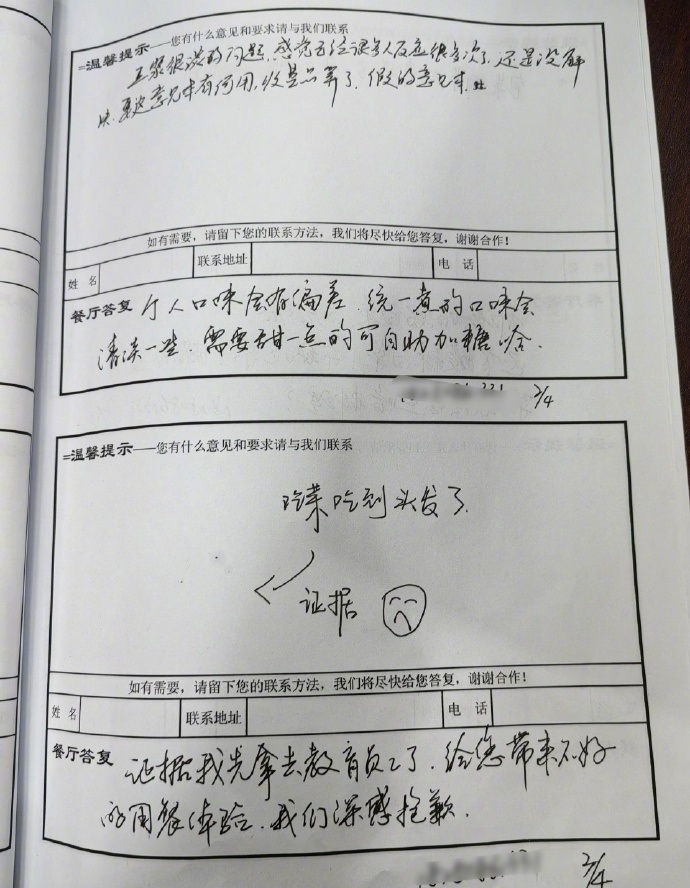 =温馨提示——您有什么意见和要求请与我们联系
豆浆很淡的问题,感觉已经很多人反应很多次了,还是没解
决.要这意见本有何用,收皇只算了.假的意见本.
如有需要,请留下您的联系方法,我们将尽快给您答复,谢谢合作!
姓 名 联系地址 电 话
餐厅答复 个人口味会有偏差.统一煮的口味会
清淡一些.需要甜一点的可自助加糖哈.
2/4
=温馨提示——您有什么意见和要求请与我们联系
吃菜吃到头发了
证据
如有需要,请留下您的联系方法,我们将尽快给您答复,谢谢合作!
姓 名 联系地址 电 话
餐厅答复 证据我先拿去教育员工了.给您带来不好
的用餐体验.我们深感抱歉.
2/4